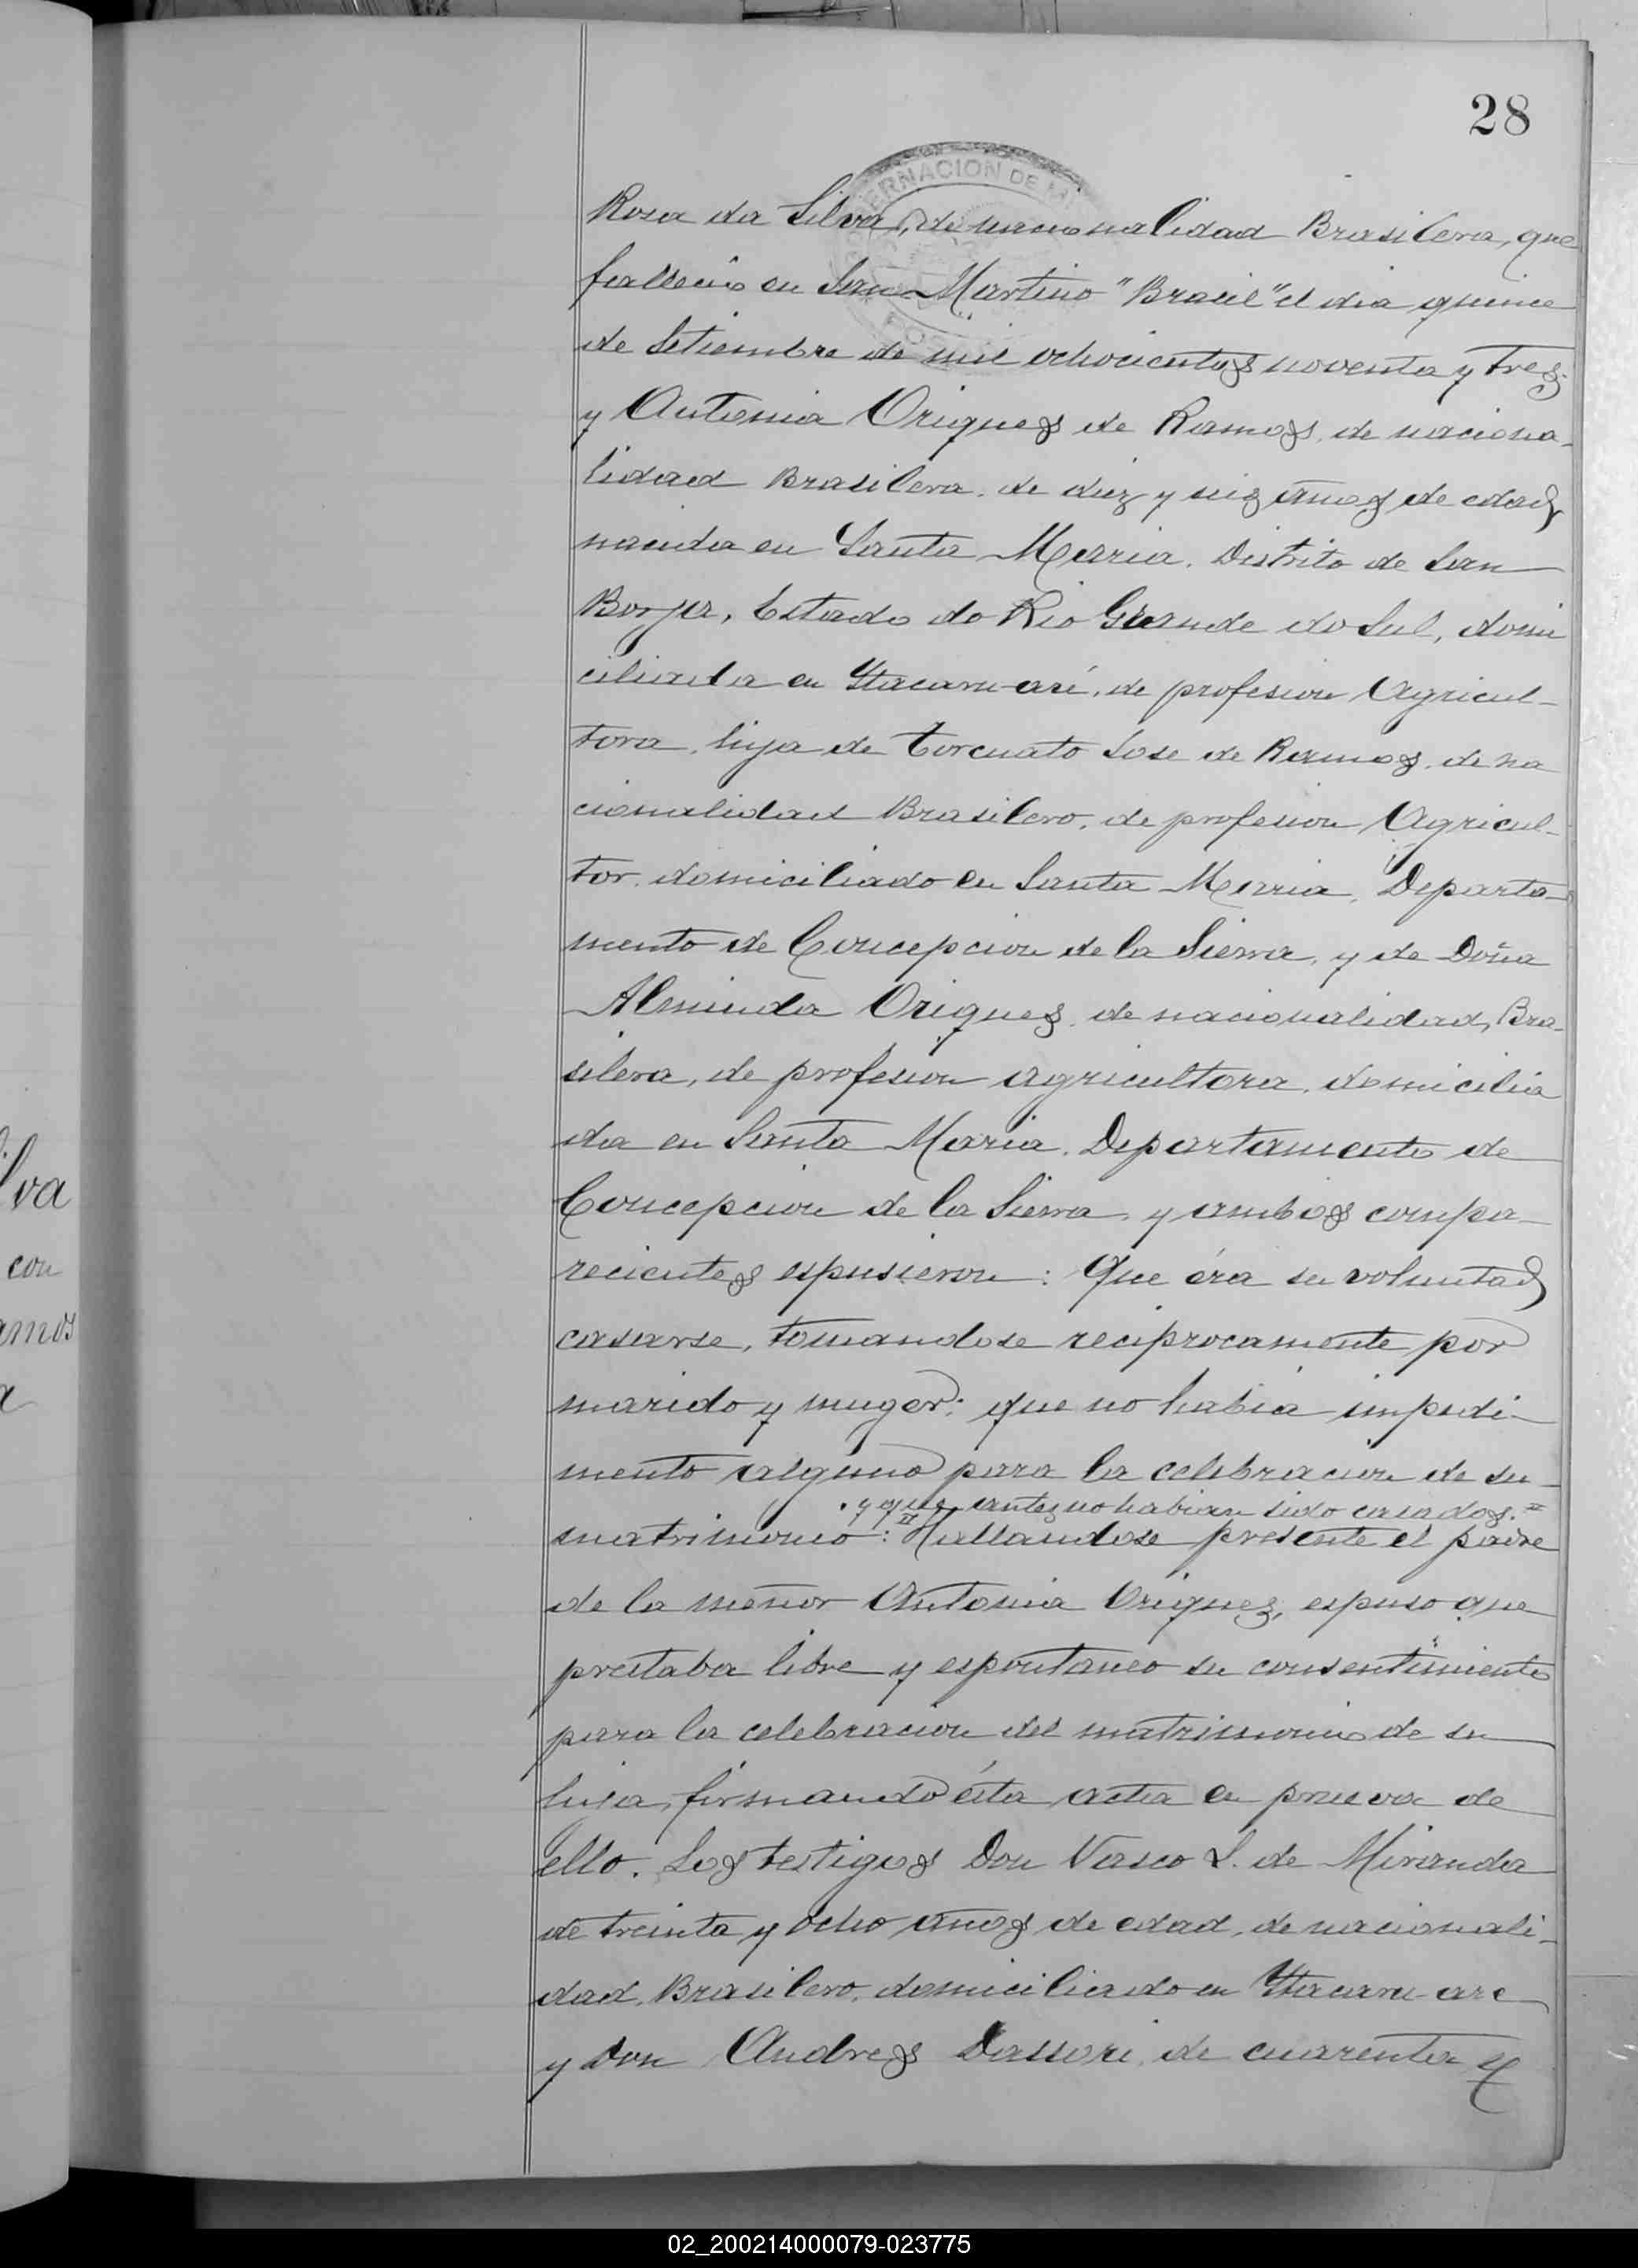 28
GOBERNACION DE M
Rosa da Silva, de nacionalidad Brasilera, que
fallecio en San Martino "Brasil" el dia quince
de Setiembre de mil ochocientos noventa y tres.
y Antonia Origues de Ramos, de naciona-
lidad Brasilera. de diez y seis años de edad
nacida en Santa Maria. Distrito de San
Borja, Estado do Rio Grande do Sul, domi
ciliada en Ytacaru-aré, de profesion Agricul-
tora, hija de Torcuato Jose de Ramos, de na
cionalidad Brasilero, de profesion Agricul-
tor, domiciliado en Santa Maria, Departa-
mento de Concepcion de la Sierra, y de Doña
Alminda Origues, de nacionalidad, Bra-
silera, de profesion agricultora, domicilia
da en Santa Maria. Departamento de
Concepcion de la Sierra, y ambos compa-
recientes espusieron: Que éra su voluntad
casarse, tomandose reciprocamente por
marido y muger; que no habia impedi-
mento alguno para la celebracion de su
. y que antes no habian sido casados. =
matrimonio: Hallandose presente el padre
de la menor Antonia Origues, espuso que
prestaba libre y espontaneo su consentimiento
para la celebracion del matrimonio de su
hija, firmando ésta acta en prueva de
ello. Los testigos Don Vasco L. de Miranda
de treinta y ocho años de edad, de nacionali-
dad, Brasilero, domiciliado en Ytacaru-are
y Don Andres Dassori, de cuarenta y
lva
con
amos
a
02_200214000079-023775